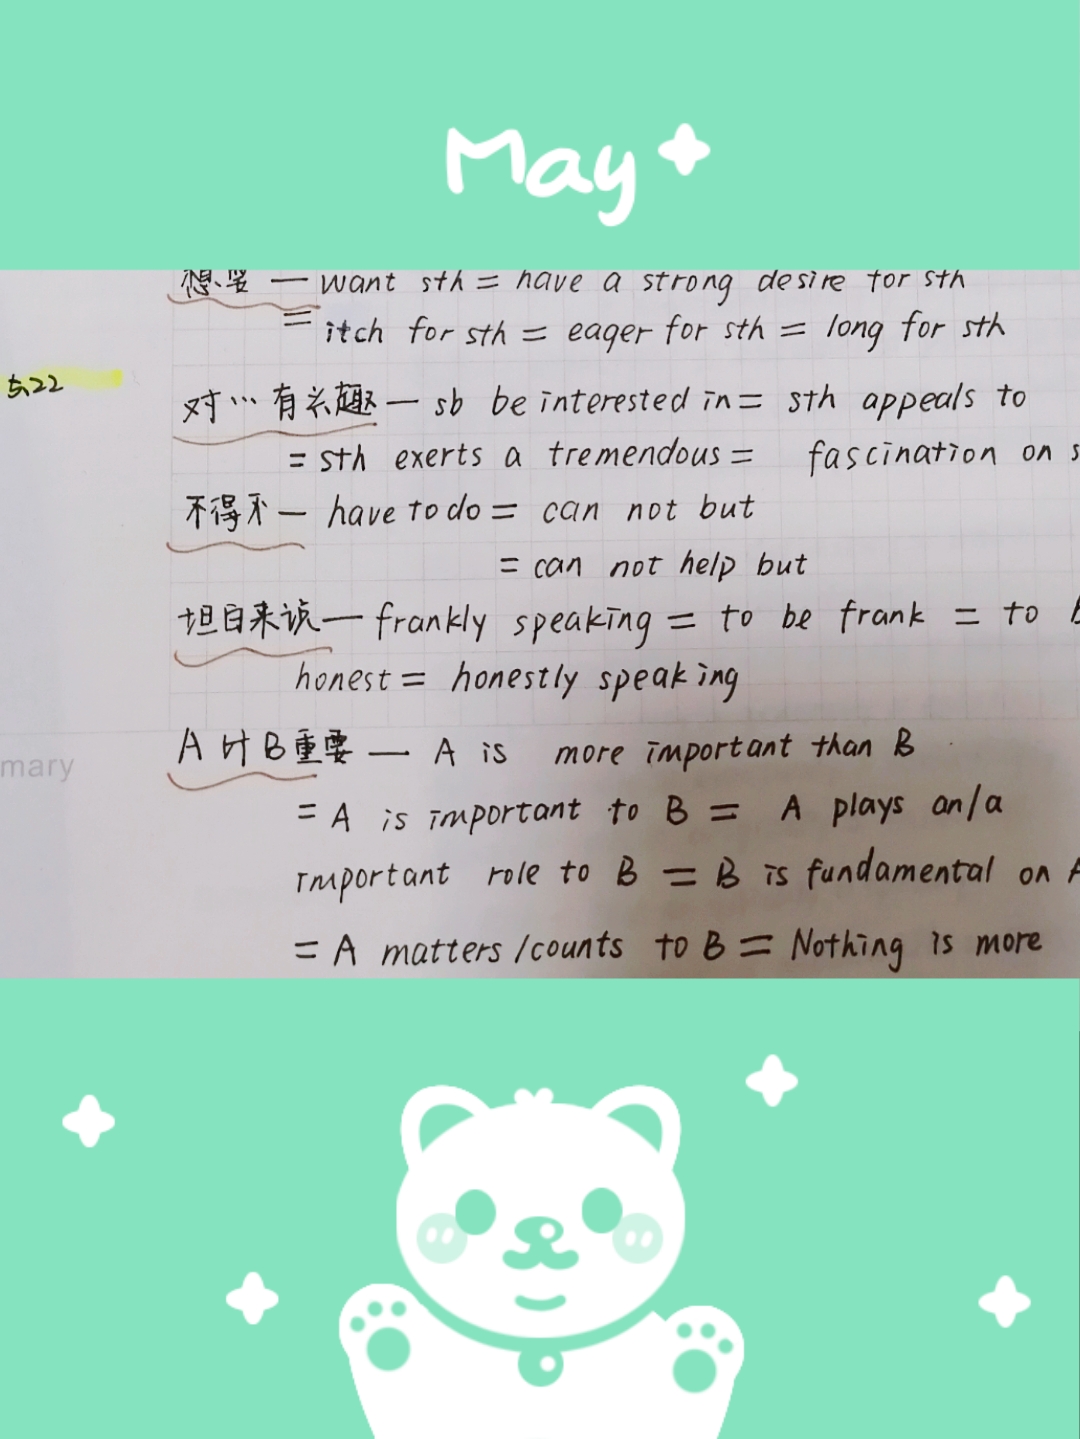 May
想要 — want sth = have a strong desire for sth
= itch for sth = eager for sth = long for sth
5.22
对…有兴趣 — sb be interested in = sth appeals to
= sth exerts a tremendous = fascination on s
不得不 — have to do = can not but
= can not help but
坦白来说 — frankly speaking = to be frank = to b
honest = honestly speaking
mary
A 时 B 重要 — A is more important than B
= A is important to B = A plays an/a
important role to B = B is fundamental on A
= A matters/counts to B = Nothing is more